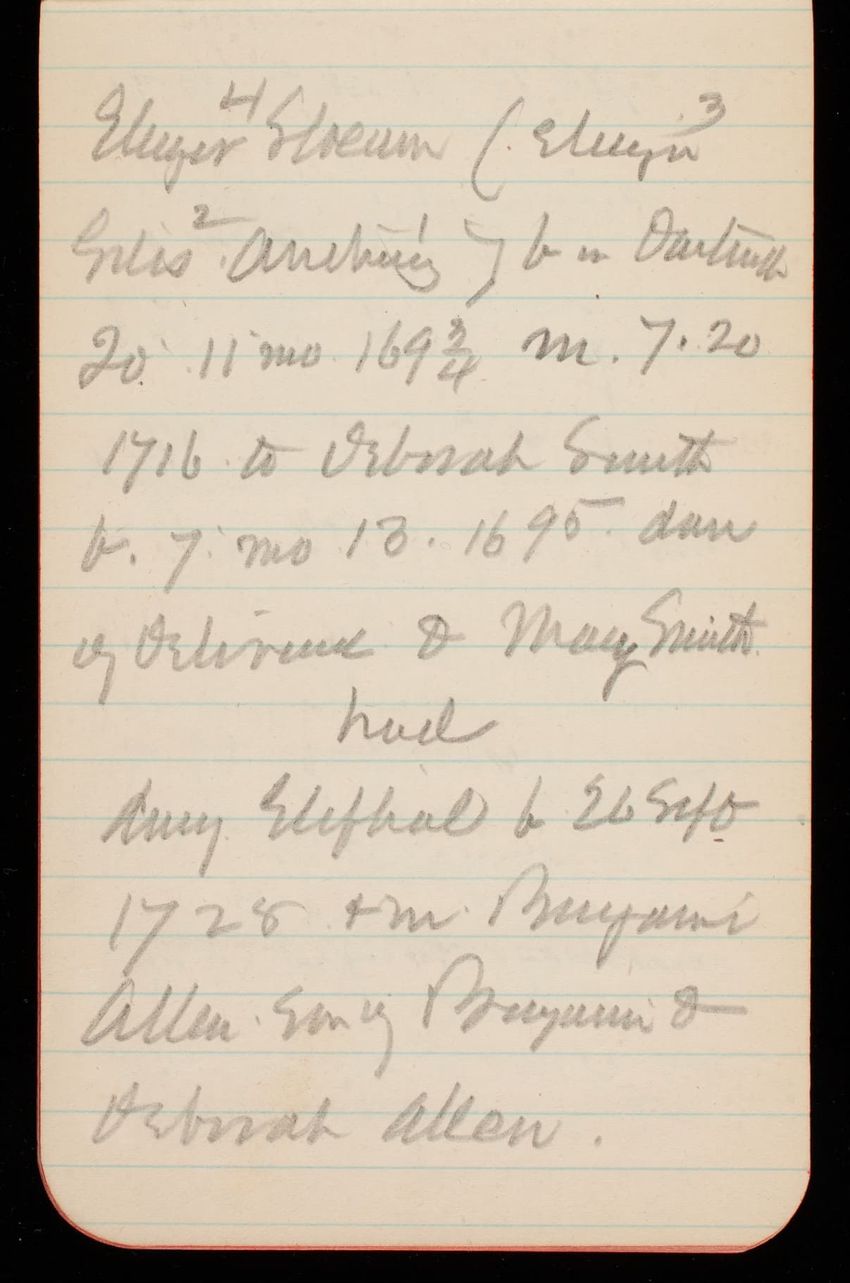 Eliezer⁴ Slocum (Eliezer³
Giles² Anthony¹) b in Dartmth
20 11 mo 169¾ m. 7. 20
1716 to Deborah Smith
b. 7 mo 13. 1695 dau
of Deliverance & Mary Smith
had
Eliphal b 26 Sept
1728 & m. Benjamin
Allen Son of Benjamin &
Deborah Allen.